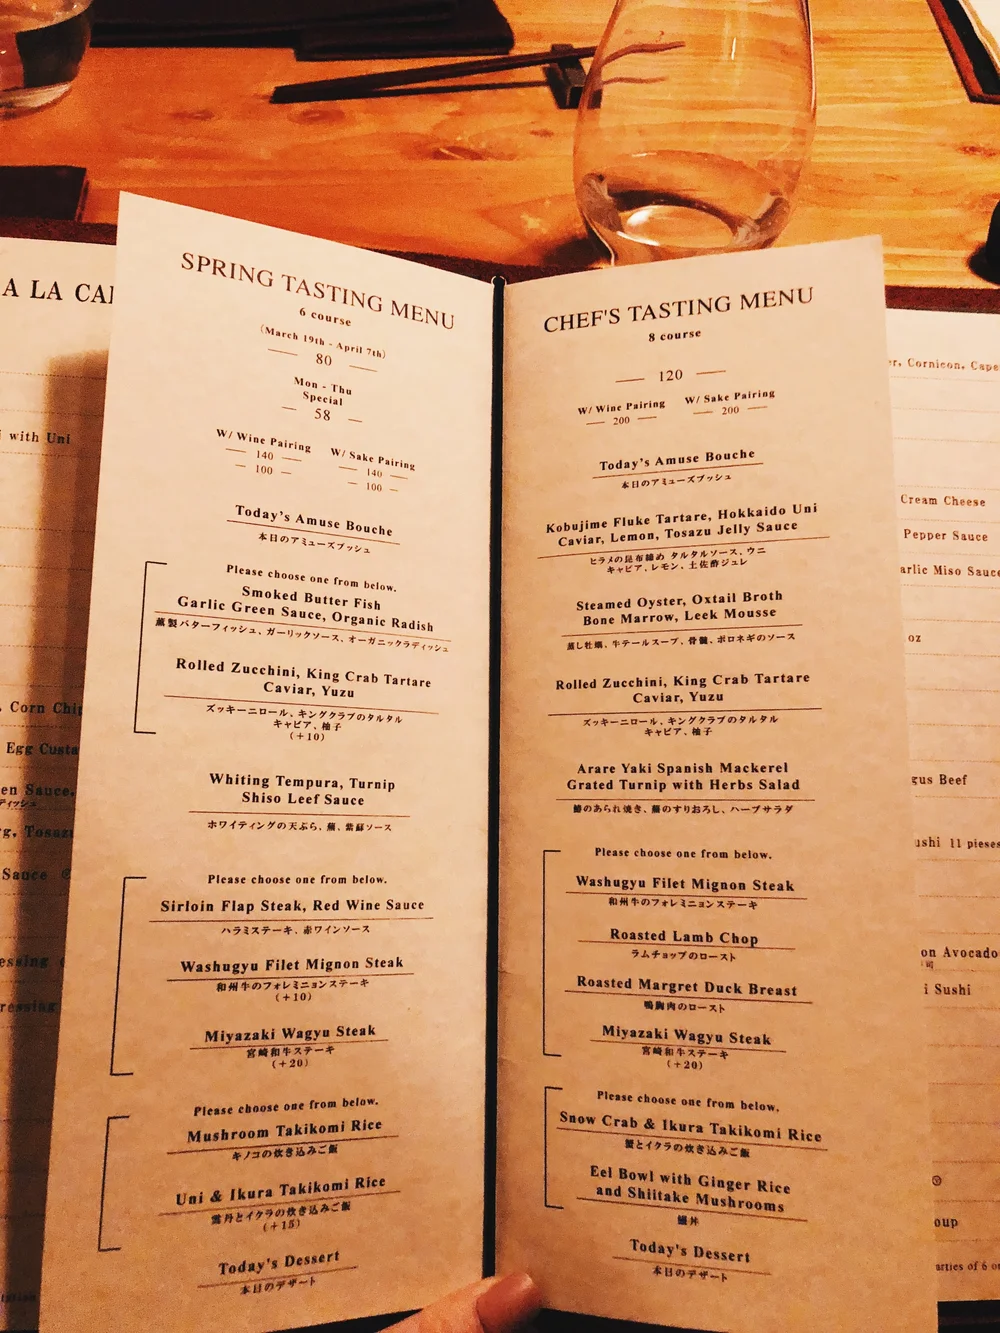 A LA
with Uni
Corn Chip
Egg Custa
en Sauce,
Sauce
SPRING TASTING MENU
6 course
(March 19th - April 7th)
80
Mon - Thu
Special
58
W/ Wine Pairing W/ Sake Pairing
140 140
100 100
Today's Amuse Bouche
本日のアミューズブッシュ
Please choose one from below.
Smoked Butter Fish
Garlic Green Sauce, Organic Radish
薫製バターフィッシュ、ガーリックソース、オーガニックラディッシュ
Rolled Zucchini, King Crab Tartare
Caviar, Yuzu
ズッキーニロール、キングクラブのタルタル
キャビア、柚子
(+10)
Whiting Tempura, Turnip
Shiso Leef Sauce
ホワイティングの天ぷら、蕪、紫蘇ソース
Please choose one from below.
Sirloin Flap Steak, Red Wine Sauce
ハラミステーキ、赤ワインソース
Washugyu Filet Mignon Steak
和州牛のフォレミニョンステーキ
(+10)
Miyazaki Wagyu Steak
宮崎和牛ステーキ
(+20)
Please choose one from below.
Mushroom Takikomi Rice
キノコの炊き込みご飯
Uni & Ikura Takikomi Rice
雲丹とイクラの炊き込みご飯
(+15)
Today's Dessert
本日のデザート
CHEF'S TASTING MENU
8 course
120
W/ Wine Pairing W/ Sake Pairing
200 200
Today's Amuse Bouche
本日のアミューズブッシュ
Kobujime Fluke Tartare, Hokkaido Uni
Caviar, Lemon, Tosazu Jelly Sauce
ヒラメの昆布締め タルタルソース、ウニ
キャビア、レモン、土佐酢ジュレ
Steamed Oyster, Oxtail Broth
Bone Marrow, Leek Mousse
蒸し牡蠣、牛テールスープ、骨髄、ポロネギのソース
Rolled Zucchini, King Crab Tartare
Caviar, Yuzu
ズッキーニロール、キングクラブのタルタル
キャビア、柚子
Arare Yaki Spanish Mackerel
Grated Turnip with Herbs Salad
鰆のあられ焼き、蕪のすりおろし、ハーブサラダ
Please choose one from below.
Washugyu Filet Mignon Steak
和州牛のフォレミニョンステーキ
Roasted Lamb Chop
ラムチョップのロースト
Roasted Margret Duck Breast
鴨胸肉のロースト
Miyazaki Wagyu Steak
宮崎和牛ステーキ
(+20)
Please choose one from below.
Snow Crab & Ikura Takikomi Rice
蟹とイクラの炊き込みご飯
Eel Bowl with Ginger Rice
and Shiitake Mushrooms
鰻丼
Today's Dessert
本日のデザート
er, Cornicon, Cape
Cream Cheese
Pepper Sauce
arlic Miso Sauce
oz
gus Beef
ushi 11 pieses
on Avocado
i Sushi
oup
arties of 6 or